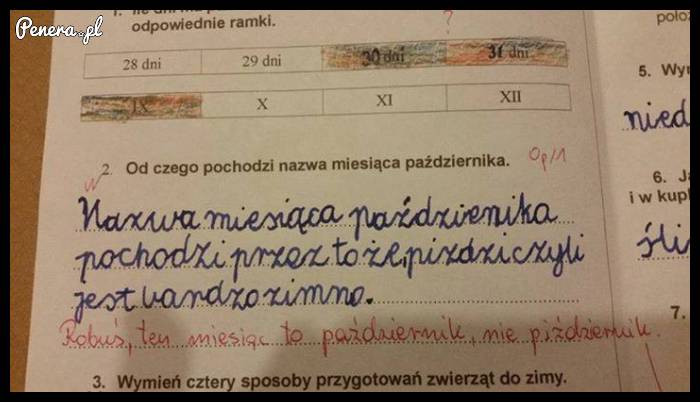 Penera.pl
odpowiednie ramki.
?
28 dni 29 dni 30 dni 31 dni
IX X XI XII
2. Od czego pochodzi nazwa miesiąca października. 0p/1
Nazwa miesiąca paździenika
pochodzi przez to że, piździ czyli
jest bardzo zimno.
Robuś, ten miesiąc to październik, nie piździernik.
3. Wymień cztery sposoby przygotowań zwierząt do zimy.
położ
5. Wy
nied
6. J
i w kup
śli
7.